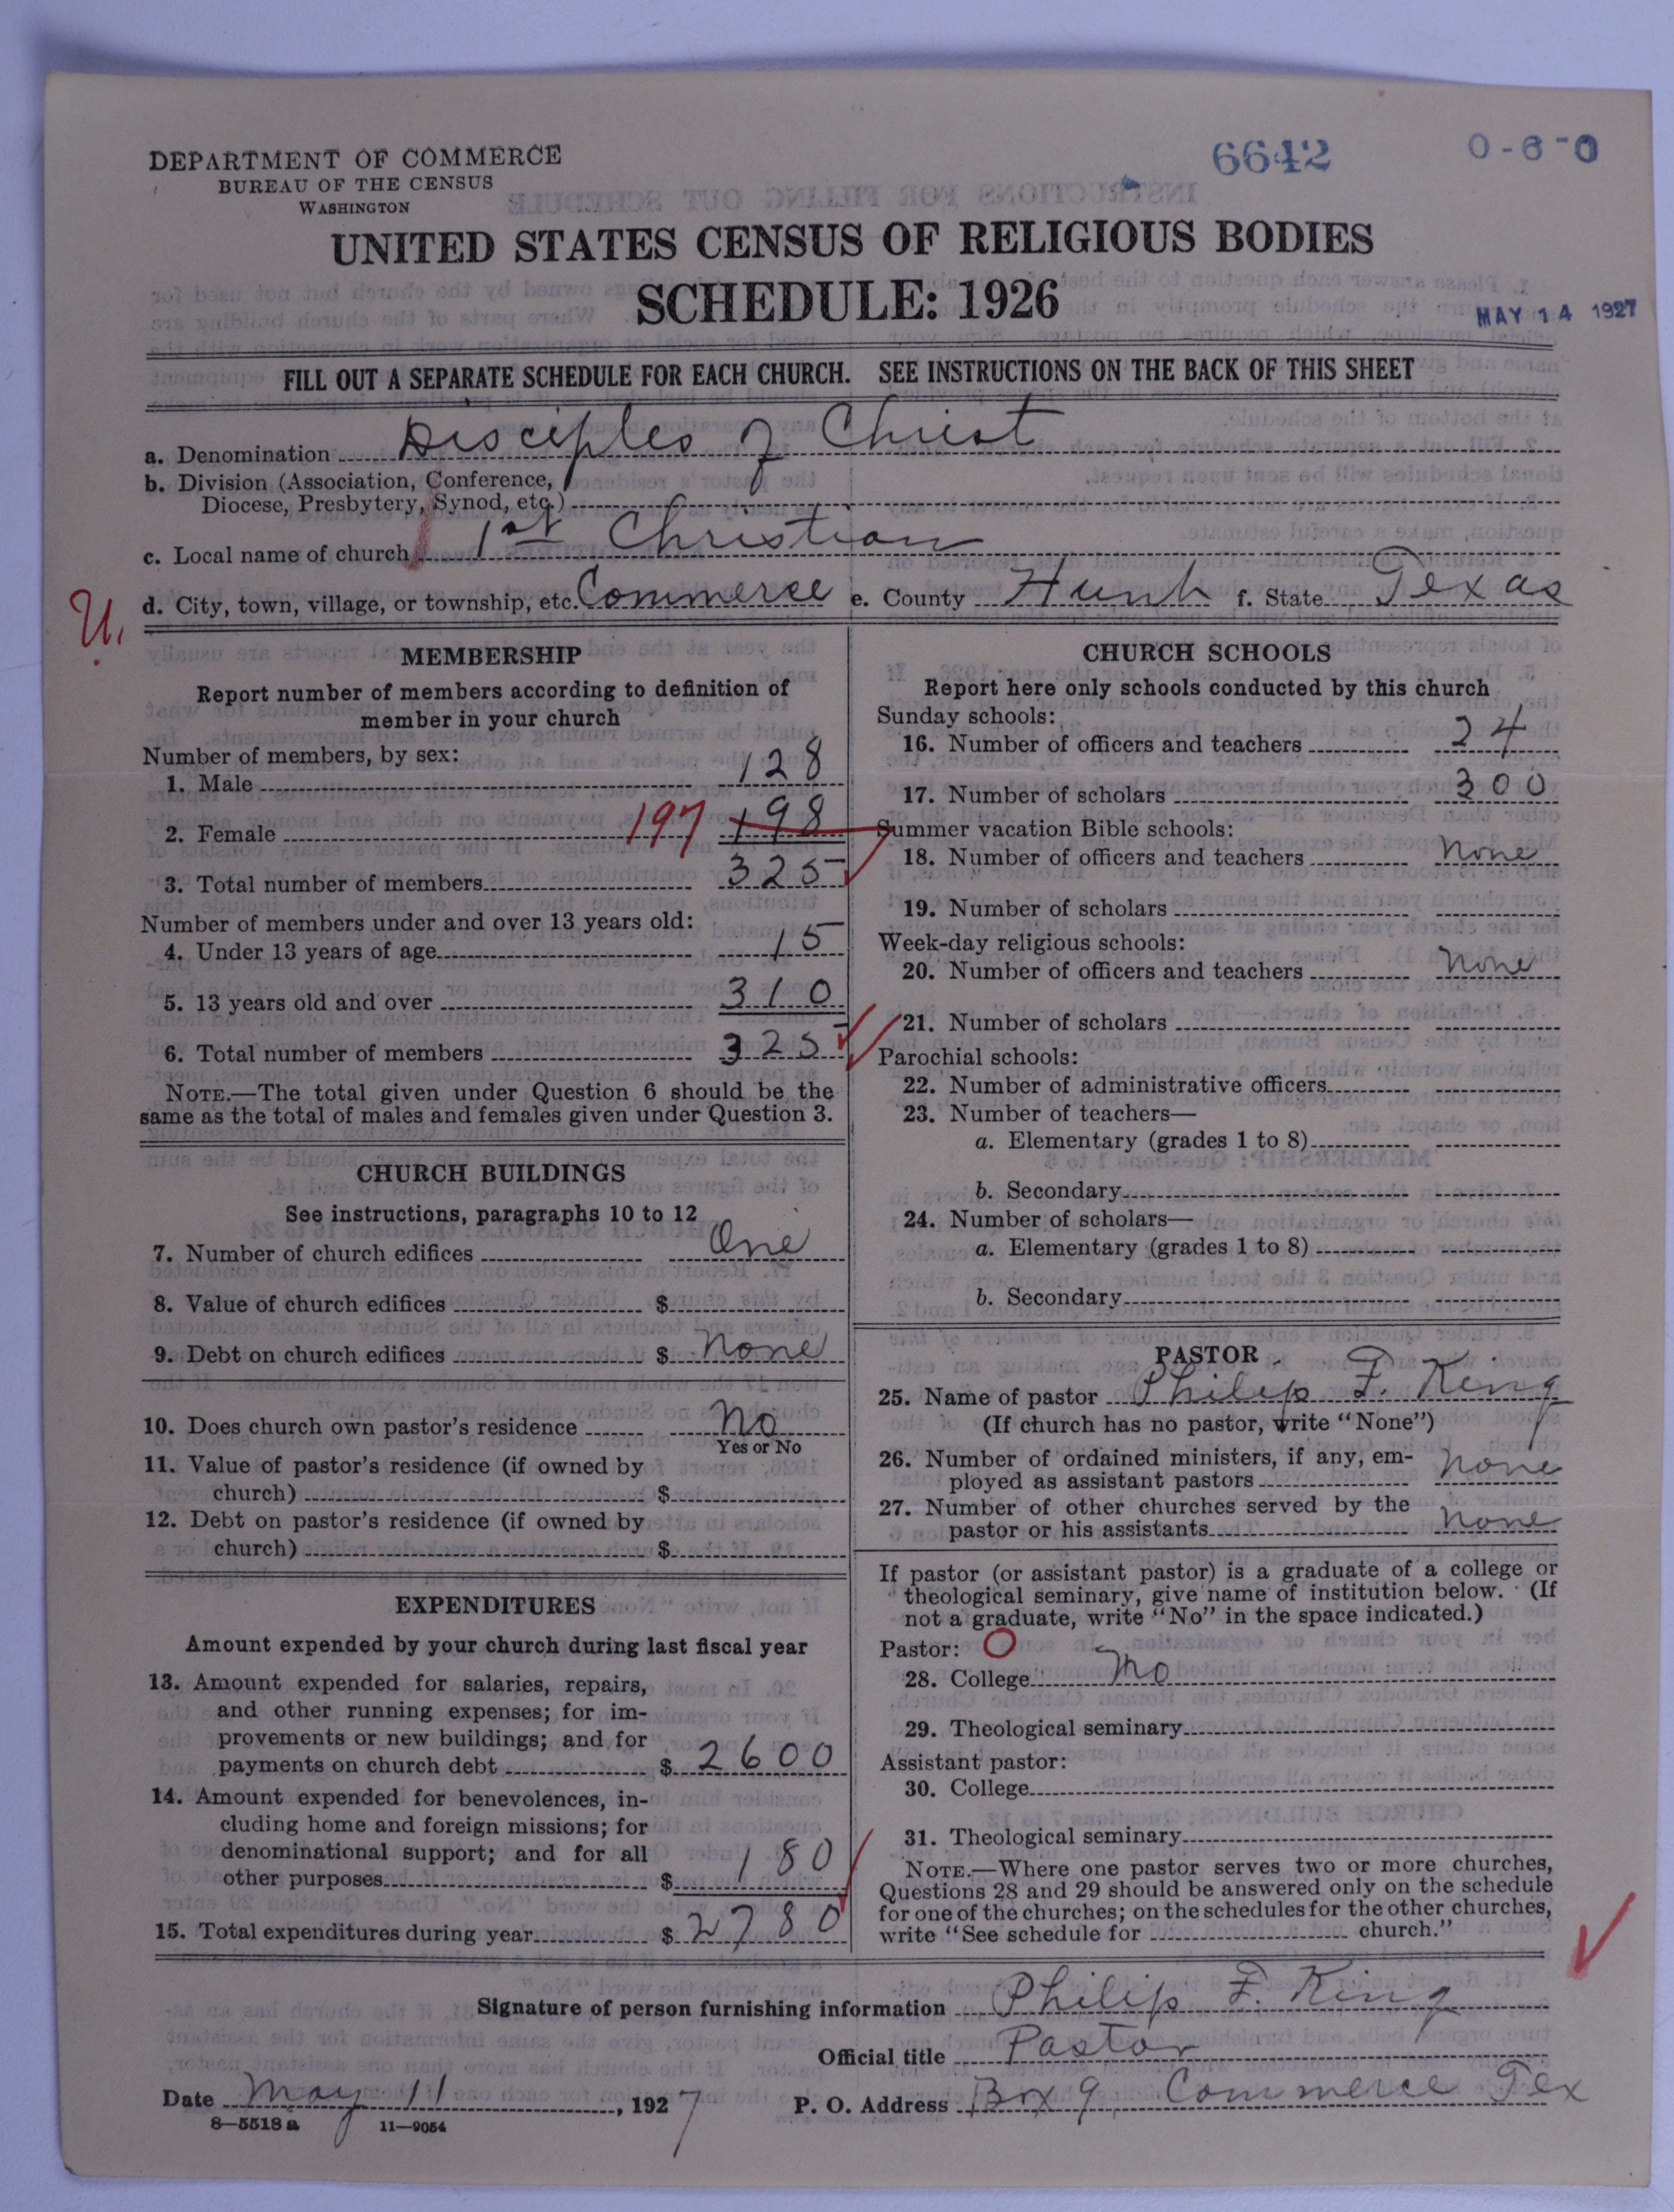 DEPARTMENT OF COMMERCE
BUREAU OF THE CENSUS
WASHINGTON
6642
0-6-0
UNITED STATES CENSUS OF RELIGIOUS BODIES
SCHEDULE: 1926
MAY 14 1927
FILL OUT A SEPARATE SCHEDULE FOR EACH CHURCH. SEE INSTRUCTIONS ON THE BACK OF THIS SHEET
a. Denomination Disciples of Christ
b. Division (Association, Conference,
Diocese, Presbytery, Synod, etc.)
c. Local name of church 1st Christian
U.
d. City, town, village, or township, etc. Commerce e. County Hunt f. State Texas
MEMBERSHIP
Report number of members according to definition of
member in your church
Number of members, by sex:
1. Male 128
2. Female 197 198
3. Total number of members 325
Number of members under and over 13 years old:
4. Under 13 years of age 15
5. 13 years old and over 310
6. Total number of members 325
NOTE.—The total given under Question 6 should be the
same as the total of males and females given under Question 3.
CHURCH BUILDINGS
See instructions, paragraphs 10 to 12
7. Number of church edifices One
8. Value of church edifices $
9. Debt on church edifices $ none
10. Does church own pastor's residence no
Yes or No
11. Value of pastor's residence (if owned by
church) $
12. Debt on pastor's residence (if owned by
church) $
EXPENDITURES
Amount expended by your church during last fiscal year
13. Amount expended for salaries, repairs,
and other running expenses; for im-
provements or new buildings; and for
payments on church debt $ 2600
14. Amount expended for benevolences, in-
cluding home and foreign missions; for
denominational support; and for all
other purposes $ 180
15. Total expenditures during year $ 2780
CHURCH SCHOOLS
Report here only schools conducted by this church
Sunday schools:
16. Number of officers and teachers 24
17. Number of scholars 300
Summer vacation Bible schools:
18. Number of officers and teachers none
19. Number of scholars
Week-day religious schools:
20. Number of officers and teachers none
21. Number of scholars
Parochial schools:
22. Number of administrative officers
23. Number of teachers—
a. Elementary (grades 1 to 8)
b. Secondary
24. Number of scholars—
a. Elementary (grades 1 to 8)
b. Secondary
PASTOR
25. Name of pastor Philip F. King
(If church has no pastor, write "None")
26. Number of ordained ministers, if any, em-
ployed as assistant pastors none
27. Number of other churches served by the
pastor or his assistants none
If pastor (or assistant pastor) is a graduate of a college or
theological seminary, give name of institution below. (If
not a graduate, write "No" in the space indicated.)
Pastor: O
28. College no
29. Theological seminary
Assistant pastor:
30. College
31. Theological seminary
NOTE.—Where one pastor serves two or more churches,
Questions 28 and 29 should be answered only on the schedule
for one of the churches; on the schedules for the other churches,
write "See schedule for church."
Signature of person furnishing information Philip F. King
Official title Pastor
Date May 11, 1927 P. O. Address Box 9 Commerce Tex
8—5518 a 11—9054